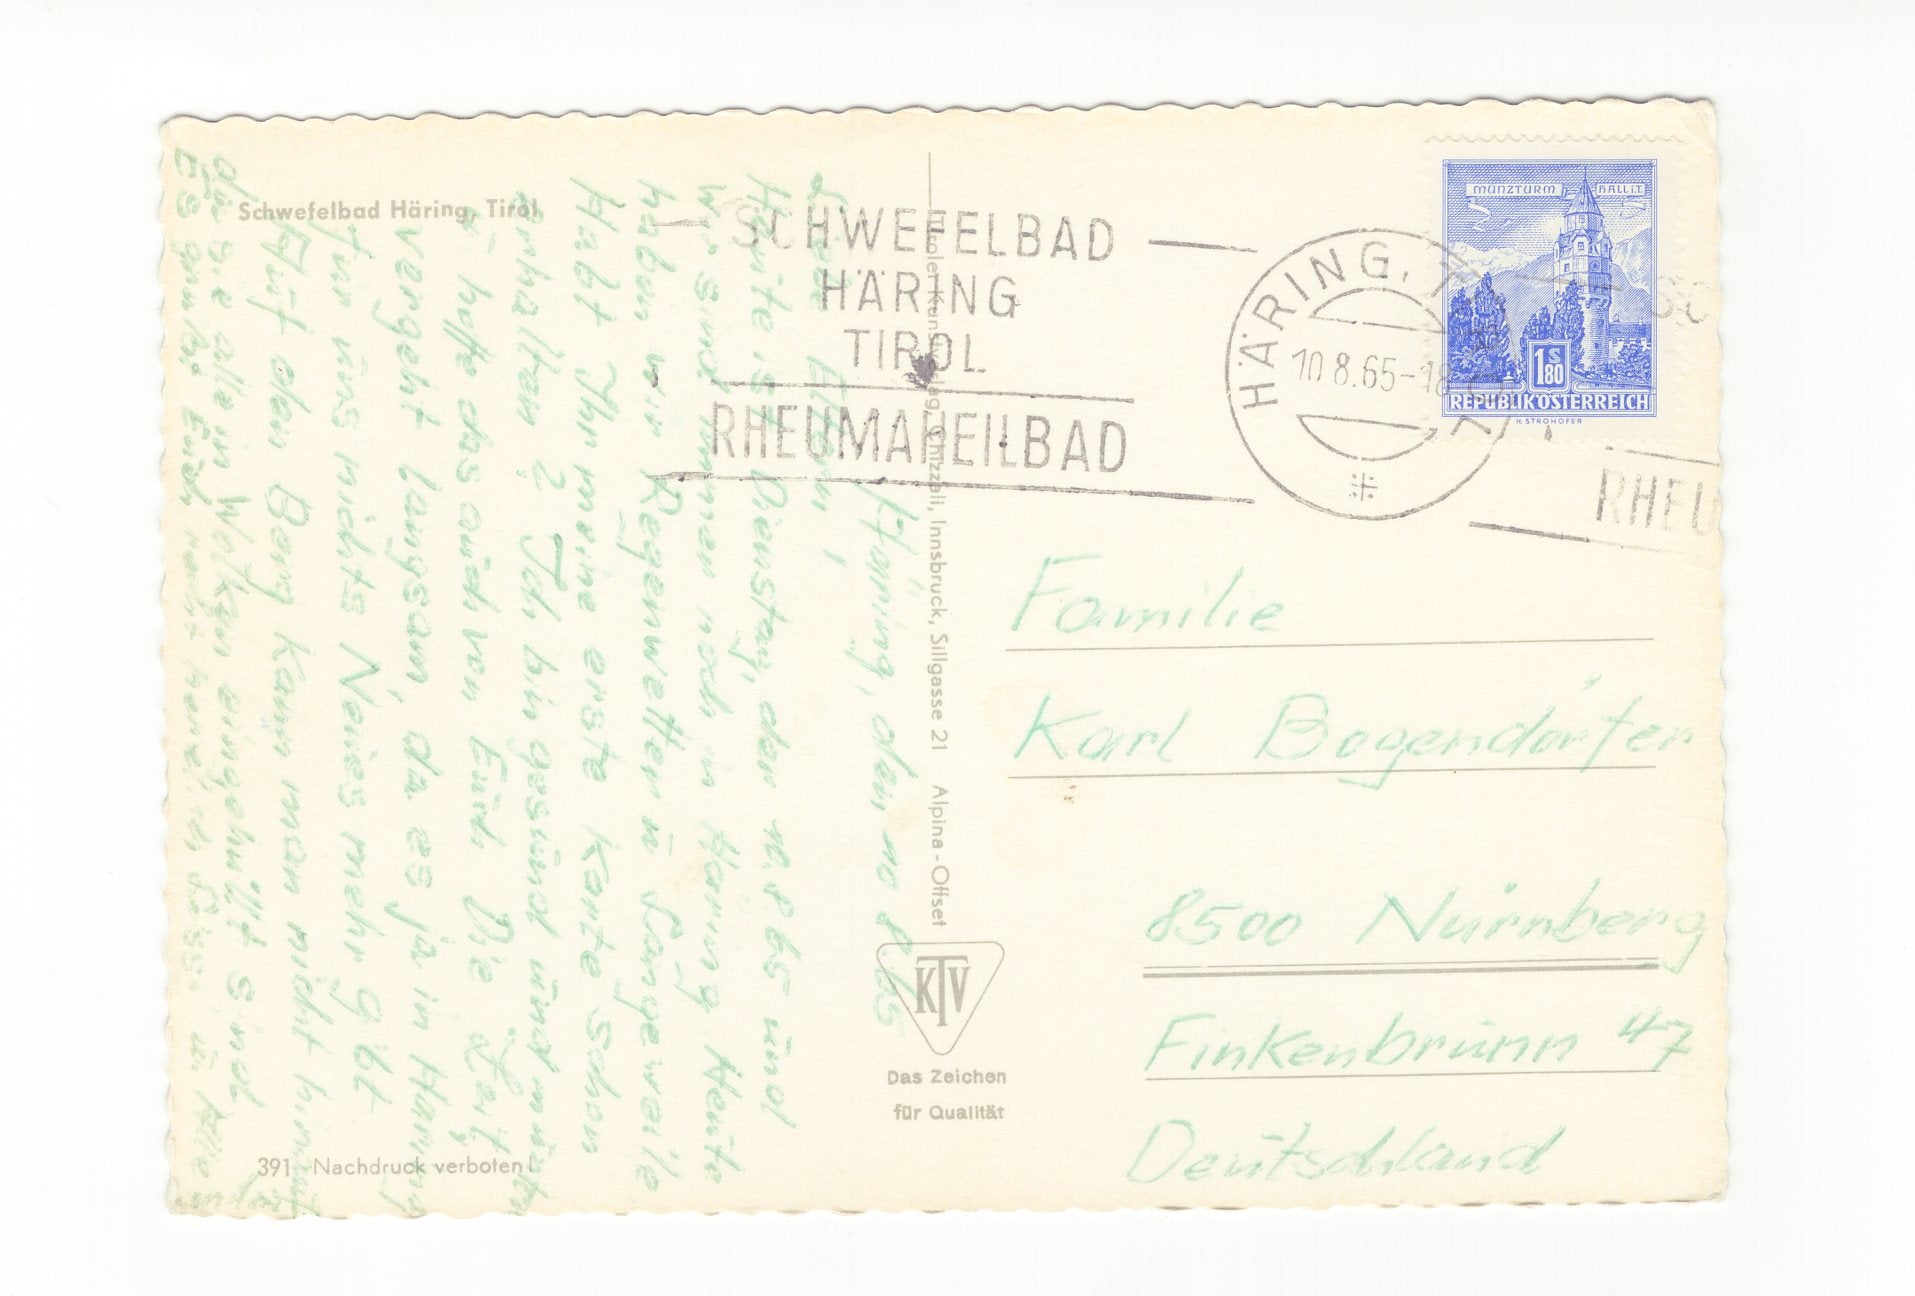 Schwefelbad Häring, Tirol
SCHWEFELBAD
HÄRING
TIROL
RHEUMAHEILBAD
HÄRING, T
10.8.65-18
SC
RHEU
MÜNZTURM HALL i.T.
1 S 80
REPUBLIK ÖSTERREICH
H. STROHOFER
Häring, den 10 8 65
Liebe Eltern!
Heute ist Dienstag, der 10.8.65 und
wir sind immer noch in Häring Heute
haben wir Regenwetter ü. Langeweile
Habt Ihr meine erste Karte schon
erhalten? Ich bin gesünd ünd münter
ü. hoffe das aüch von Eüch Die Zeit
vergeht langsam, da es ja in Häring
für üns nichts Neües mehr gibt
Aüf den Berg kann man nicht hinaüf
da sie alle in Wolken eingehüllt sind
Es grüßt Eüch recht herzlich ü. Alle
Tiroler Kunstverlag Chizzali, Innsbruck, Sillgasse 21 Alpina-Offset
KTV
Das Zeichen
für Qualität
391 Nachdruck verboten!
Familie
Karl Bogendörfer
8500 Nürnberg
Finkenbrünn 47
Deütschland